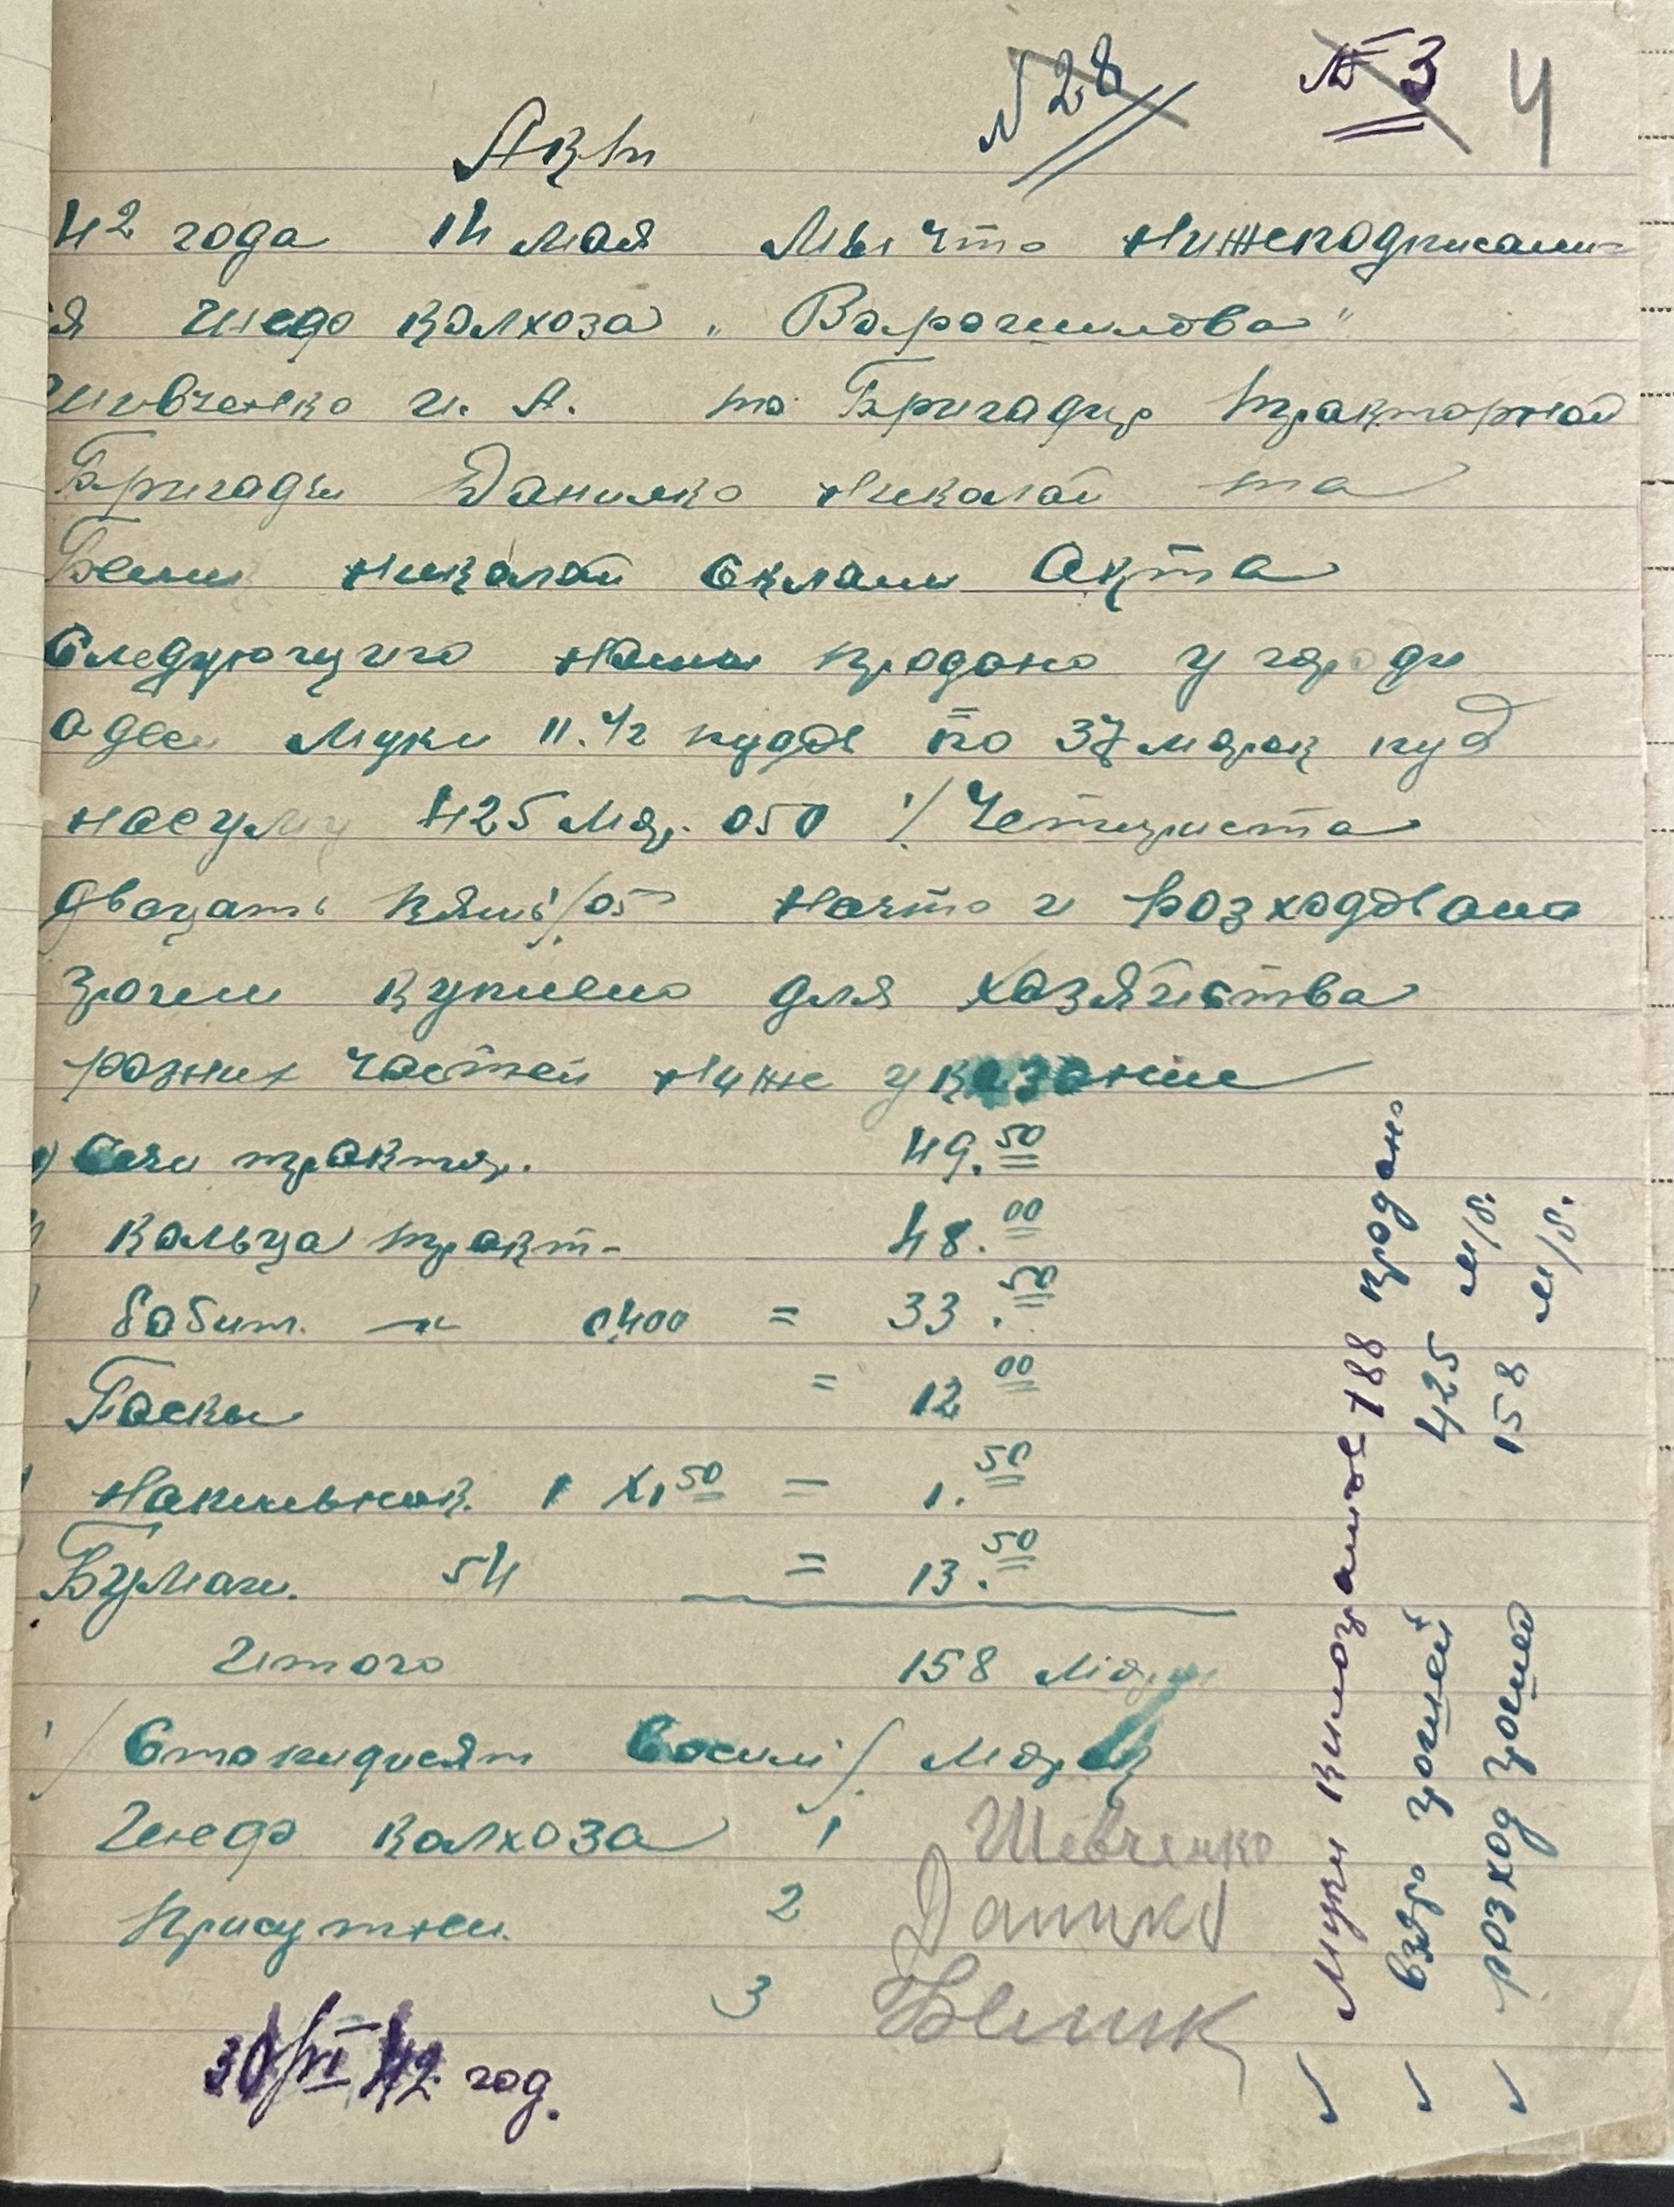 № 28
№ 3 4
Акт
42 года 14 мая Мы что нижеподписаии-
я Шеф колхоза „Варошилова"
Шивченко И. А. та Бригадир тракторной
Бригади Данилко Николай та
Белик Николай склали Акта
Следующиго нами продано у городи
Адеси Муки 11.1/2 пудов по 37 марок пуд
насуму 425 Мар. 050 /Четириста
двацать пять/05 начто и розходована
грошей куплено для хозяйства
розних частей ниже указание
Свечи трактор. 49.50
кольца тракт- 48.00
бобит. — 0,400 = 33.50
Гаскы = 12 00
Напильник 1 х 1 50 = 1.50
Бумаги. 54 = 13.50
Итого 158 Мар
/Стопидисят восим/ Марок
Шеф колхоза 1 Шевченко
Присутнеи 2 Данилко
3 Белик
30/VI 42 год.
Муки килограмов 188 продано
взято грошей 425 м/в.
розход грошей 158 м/в.